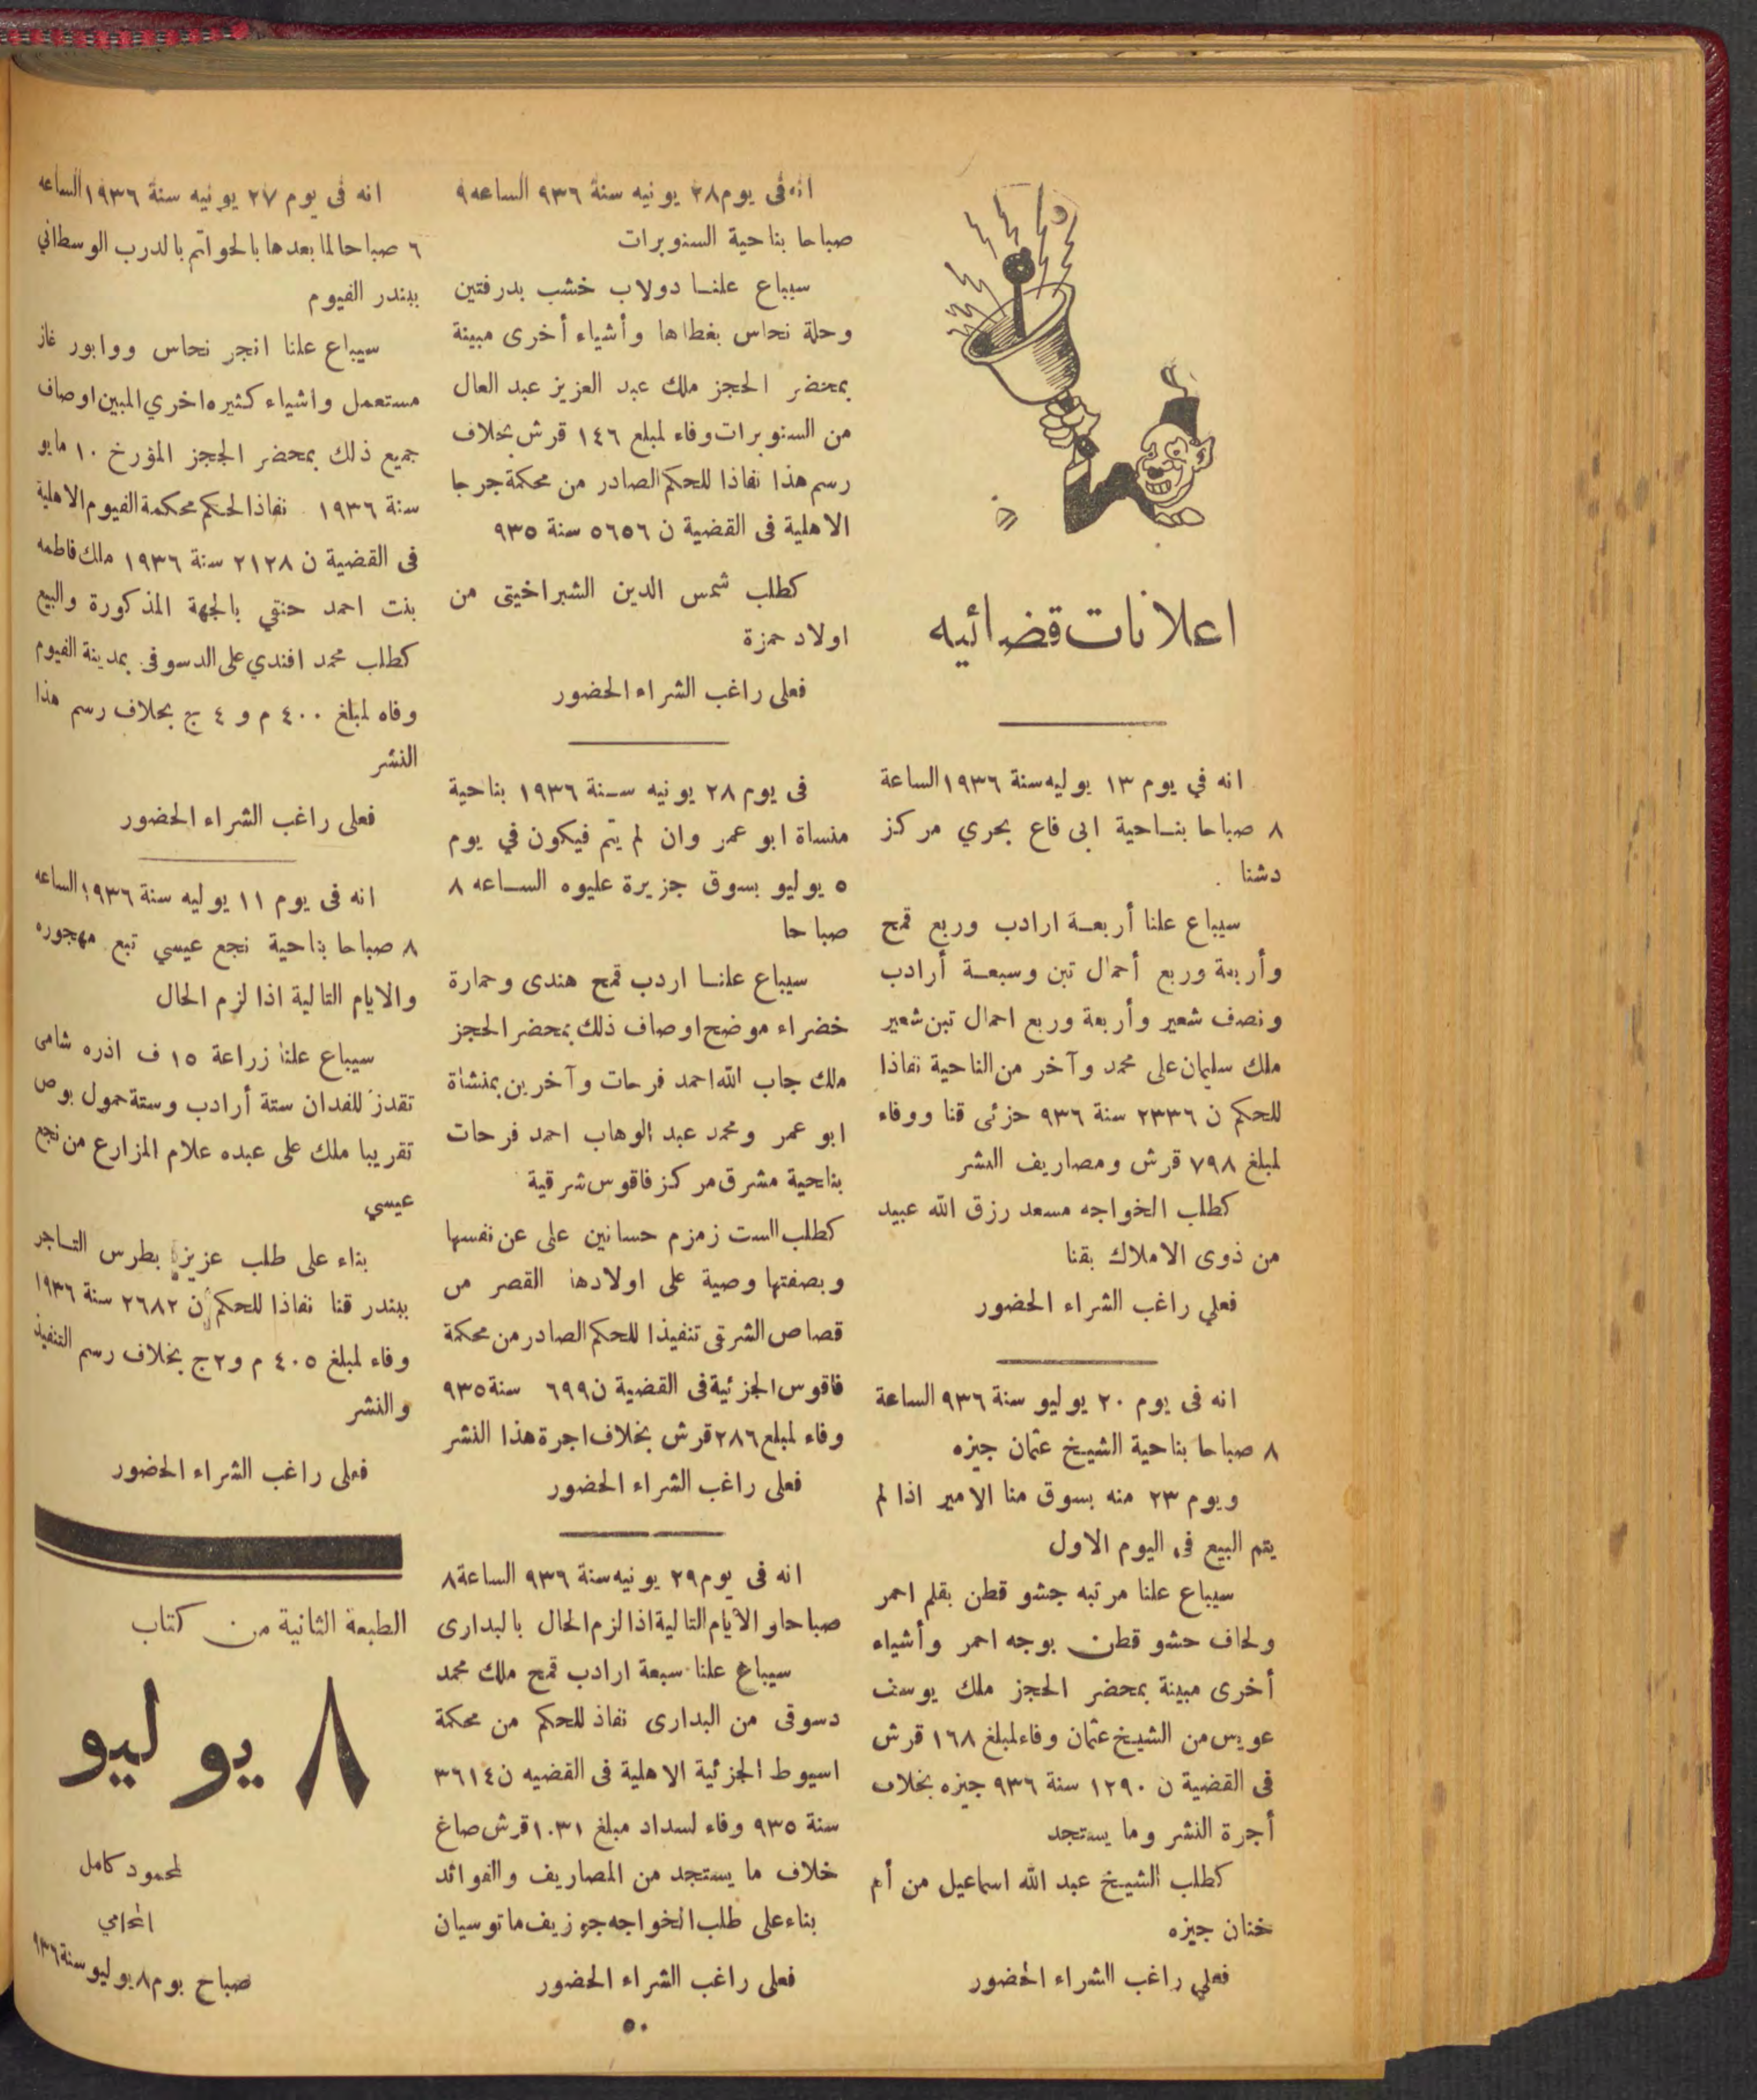 اعلانات قضائيه
انه في يوم ١٣ يوليه سنة ١٩٣٦ الساعة
٨ صباحا بناحية ابى قاع بحري مركز
دشنا .
سيباع علنا أربعة ارادب وربع قمح
وأربعة وربع أحمال تبن وسبعة أرادب
ونصف شعير وأربعة وربع احمال تبن شعير
ملك سليمان على محمد وآخر من الناحية نفاذا
للحكم ن ٢٣٣٦ سنة ٩٣٦ حزئى قنا ووفاء
لمبلغ ٧٩٨ قرش ومصاريف النشر
كطلب الخواجه مسعد رزق الله عبيد
من ذوى الاملاك بقنا
فعلي راغب الشراء الحضور
انه فى يوم ٢٠ يوليو سنة ٩٣٦ الساعة
٨ صباحا بناحية الشيخ عثمان جيزه
ويوم ٢٣ منه بسوق منا الامير اذا لم
يتم البيع فى اليوم الاول
سيباع علنا مرتبه جشو قطن بقلم احمر
ولحاف حشو قطن بوجه احمر وأشياء
أخرى مبينة بمحضر الحجز ملك يوسف
عويس من الشيخ عثمان وفاء لمبلغ ١٦٨ قرش
فى القضية ن ١٢٩٠ سنة ٩٣٦ جيزه بخلاف
أجرة النشر وما يستجد
كطلب الشيخ عبد الله اسماعيل من أم
خنان جيزه
فعلي راغب الشراء الحضور
انه فى يوم ٢٨ يونيه سنة ٩٣٦ الساعه ٩
صباحا بناحية السنوبرات
سيباع علنا دولاب خشب بدرفتين
وحلة نحاس بغطاها وأشياء أخرى مبينة
بمحضر الحجز ملك عبد العزيز عبد العال
من السنوبرات وفاء لمبلغ ١٤٦ قرش بخلاف
رسم هذا نفاذا للحكم الصادر من محكمة جرجا
الاهلية فى القضية ن ٥٦٥٦ سنة ٩٣٥
كطلب شمس الدين الشبراخيتى من
اولاد حمزة
فعلى راغب الشراء الحضور
فى يوم ٢٨ يونيه سنة ١٩٣٦ بناحية
منساة ابو عمر وان لم يتم فيكون في يوم
٥ يوليو بسوق جزيرة عليوه الساعه ٨
صباحا
سيباع علنا اردب قمح هندى وحمارة
خضراء موضح اوصاف ذلك بمحضر الحجز
ملك جاب الله احمد فرحات وآخرين بمنشاة
ابو عمر ومحمد عبد الوهاب احمد فرحات
بناحية مشرق مركز فاقوس شرقية
كطلب الست زمزم حسانين على عن نفسها
وبصفتها وصية على اولادها القصر من
قصاص الشرقى تنفيذا للحكم الصادر من محكمة
فاقوس الجزئية فى القضية ن ٦٩٩ سنة ٩٣٥
وفاء لمبلع ٢٨٦ قرش بخلاف اجرة هذا النشر
فعلى راغب الشراء الحضور
انه فى يوم ٢٩ يونيه سنة ٩٣٦ الساعة ٨
صباحا والأيام التالية اذا لزم الحال بالبدارى
سيباع علنا سبعة ارادب قمح ملك محمد
دسوقى من البدارى نفاذ للحكم من محكمة
اسيوط الجزئية الاهلية فى القضيه ن ٣٦١٤
سنة ٩٣٥ وفاء لسداد مبلغ ١٠٣١ قرش صاغ
خلاف ما يستجد من المصاريف والفوائد
بناء على طلب الخواجه جوزيف ماتوسيان
فعلى راغب الشراء الحضور
انه فى يوم ٢٧ يونيه سنة ١٩٣٦ الساعه
٦ صباحا لما بعدها بالحواتم بالدرب الوسطاني
ببندر الفيوم
سيباع علنا انجر نحاس ووابور غاز
مستعمل واشياء كثيره اخري المبين اوصاف
جميع ذلك بمحضر الججز المؤرخ ١٠ مايو
سنة ١٩٣٦ نفاذا لحكم محكمة الفيوم الاهلية
فى القضية ن ٢١٢٨ سنة ١٩٣٦ ملك فاطمه
بنت احمد حنتي بالجهة المذكورة والبيع
كطلب محمد افندي على الدسوقى بمدينة الفيوم
وفاه لمبلغ ٤٠٠ م و ٤ ج بخلاف رسم هذا
النشر
فعلى راغب الشراء الحضور
انه فى يوم ١١ يوليه سنة ١٩٣٦ الساعه
٨ صباحا بناحية نجع عيسي تبع مهجوره
والايام التالية اذا لزم الحال
سيباع علنا زراعة ١٥ ف اذره شامى
تقدر للفدان ستة أرادب وستة حمول بوص
تقريبا ملك على عبده علام المزارع من نجع
عيسي
بناء على طلب عزيز بطرس التاجر
ببندر قنا نفاذا للحكم ن ٢٦٨٢ سنة ١٩٣٦
وفاء لمبلغ ٤٠٥ م و ٢ ج بخلاف رسم التنفيذ
والنشر
فعلى راغب الشراء الحضور
الطبعة الثانية من كتاب
٨ يوليو
لمحمود كامل
المحامي
صباح يوم ٨ يوليو سنة ٩٣٦
٥٠